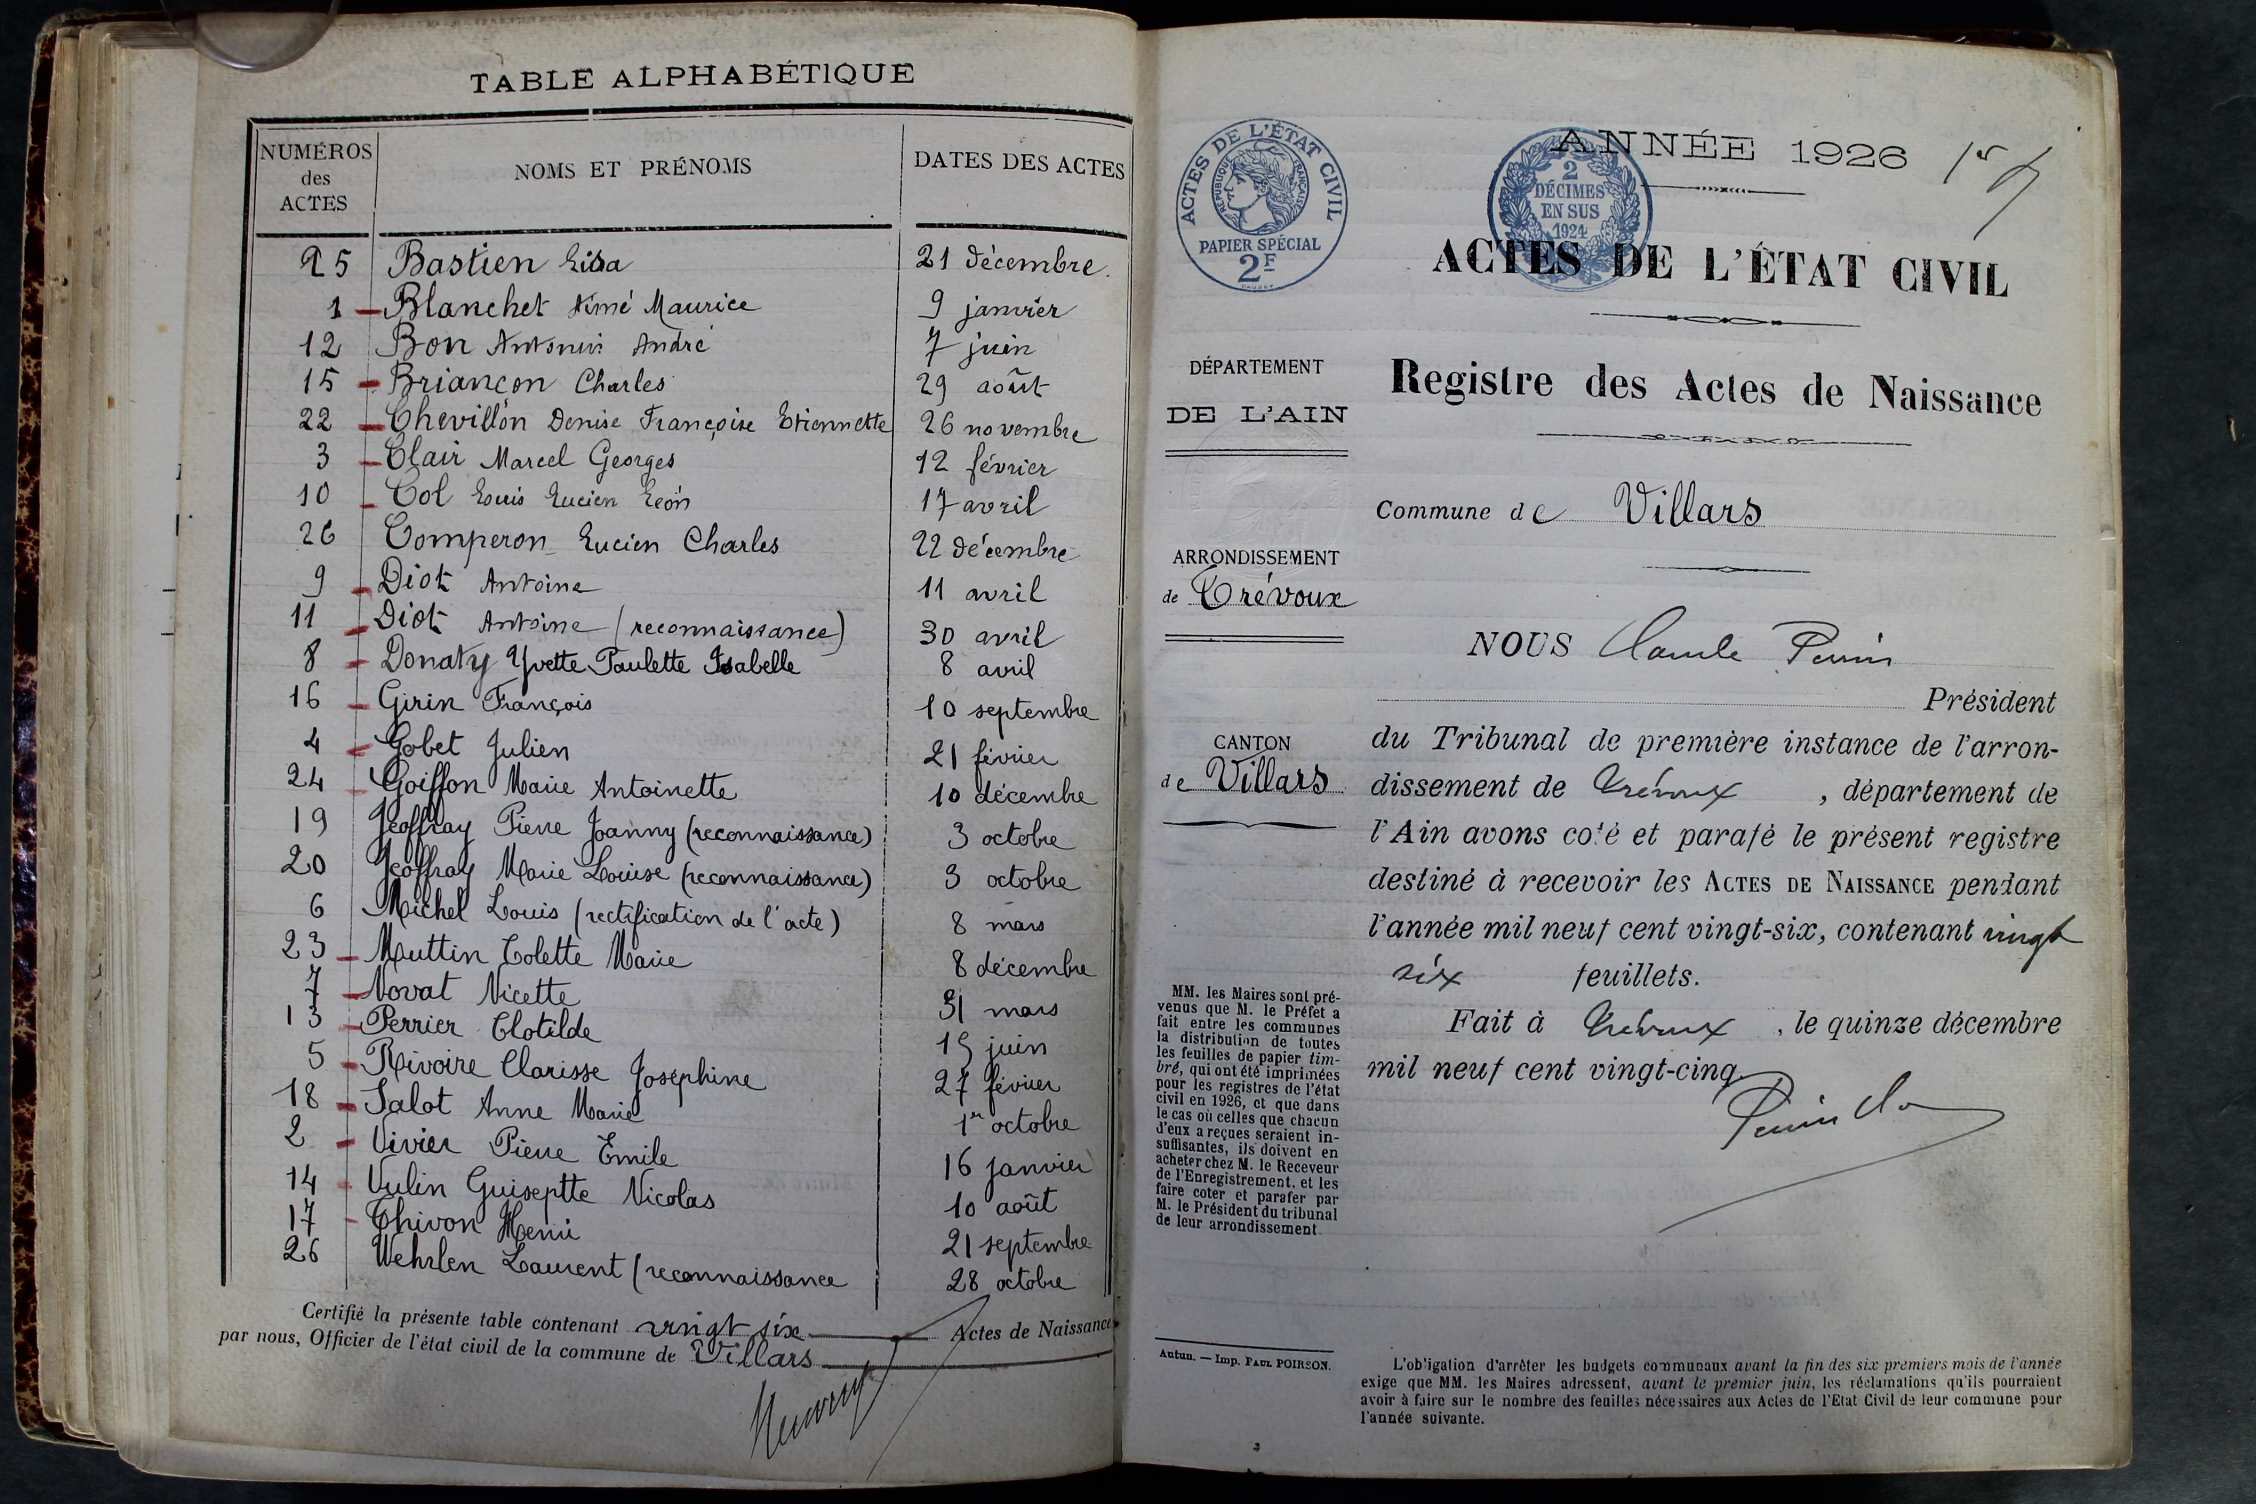 TABLE ALPHABÉTIQUE
NUMÉROS des ACTES
NOMS ET PRÉNOMS
DATES DES ACTES
25 Bastien Lisa 21 décembre.
1 Blanchet Aimé Maurice 9 janvier
12 Bon Antonin André 7 juin
15 Briançon Charles 29 août
22 Chevillon Denise Françoise Etiennette 26 novembre
3 Clair Marcel Georges 12 février
10 Col Louis Lucien Léon 17 avril
26 Comperon Lucien Charles 22 décembre
9 Diot Antoine 11 avril
11 Diot Antoine (reconnaissance) 30 avril
8 Donaty Yvette Paulette Isabelle 8 avril
16 Girin François 10 septembre
4 Gobet Julien 21 février
24 Goiffon Marie Antoinette 10 décembre
19 Jeoffray Pierre Joanny (reconnaissance) 3 octobre
20 Jeoffray Marie Louise (reconnaissance) 3 octobre
6 Michel Louis (rectification de l'acte) 8 mars
23 Muttin Colette Marie 8 décembre
7 Novat Nicette 31 mars
13 Perrier Clotilde 15 juin
5 Rivoire Clarisse Joséphine 27 février
18 Salot Anne Marie 1er octobre
2 Vivier Pierre Emile 16 janvier
14 Vulin Guiseptte Nicolas 10 août
17 Thivon Henri 21 septembre
26 Wehrlen Laurent (reconnaissance 28 octobre
Certifié la présente table contenant vingt six Actes de Naissance
par nous, Officier de l'état civil de la commune de Villars
ACTES DE L'ÉTAT CIVIL
RÉPUBLIQUE FRANÇAISE
PAPIER SPÉCIAL
2F
2
DÉCIMES
EN SUS
1924
ANNÉE 1926 1er
ACTES DE L'ÉTAT CIVIL
Registre des Actes de Naissance
DÉPARTEMENT
DE L'AIN
Commune de Villars
ARRONDISSEMENT
de Trévoux
CANTON
de Villars
NOUS Claude Perrin
Président
du Tribunal de première instance de l'arron-
dissement de Trévoux, département de
l'Ain avons coté et parafé le présent registre
destiné à recevoir les ACTES DE NAISSANCE pendant
l'année mil neuf cent vingt-six, contenant vingt
six feuillets.
Fait à Trévoux, le quinze décembre
mil neuf cent vingt-cinq
Perrin
MM. les Maires sont pré-
venus que M. le Préfet a
fait entre les communes
la distribution de toutes
les feuilles de papier tim-
bré, qui ont été imprimées
pour les registres de l'état
civil en 1926, et que dans
le cas où celles que chacun
d'eux a reçues seraient in-
suffisantes, ils doivent en
acheter chez M. le Receveur
de l'Enregistrement, et les
faire coter et parafer par
M. le Président du tribunal
de leur arrondissement.
Autun. — Imp. PAUL POIRSON.
L'obligation d'arrêter les budgets communaux avant la fin des six premiers mois de l'année
exige que MM. les Maires adressent, avant le premier juin, les réclamations qu'ils pourraient
avoir à faire sur le nombre des feuilles nécessaires aux Actes de l'Etat Civil de leur commune pour
l'année suivante.